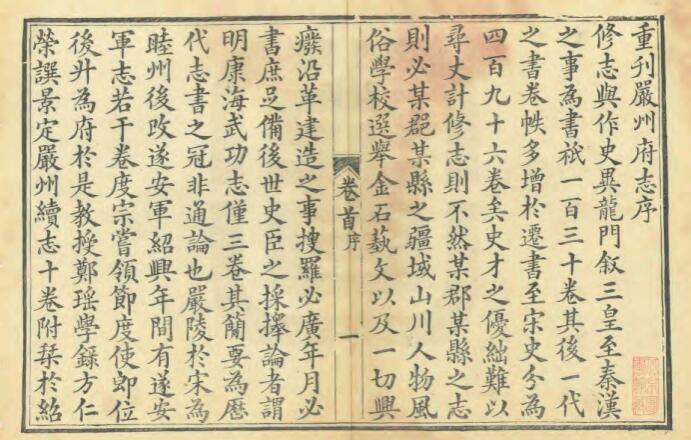 重刊嚴州府志序
修志與作史異龍門叙三皇至秦漢
之事為書祇一百三十卷其後一代
之書卷帙多增於遷書至宋史分為
四百九十六卷矣史才之優絀難以
尋丈計修志則不然某郡某縣之志
則必某郡某縣之疆域山川人物風
俗學校選舉金石藝文以及一切興
卷首 序
一
癈沿革建造之事搜羅必廣年月必
書庶足備後世史臣之採擇論者謂
明康海武功志僅三卷其簡要為歷
代志書之冠非通論也嚴陵於宋為
睦州後改遂安軍紹興年間有遂安
軍志若干卷度宗嘗領節度使卽位
後升為府於是教授鄭瑤學錄方仁
榮譔景定嚴州續志十卷附栞於紹